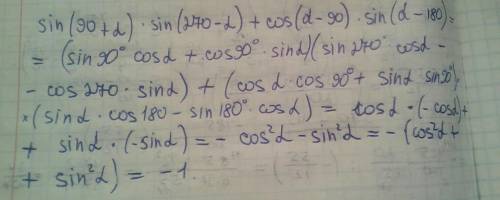 sin(90+α)·sin(270-α)+cos(α-90)·sin(α-180)=
= (sin90° cosα + cos90°·sinα)(sin270° cosα -
- cos270·sinα) + (cosα·cos90°+ sinα sin90°)·
×(sinα·cos180 - sin180°·cosα) = cosα·(-cosα)+
+ sinα·(-sinα) = - cos²α - sin²α = - (cos²α+
+ sin²α) = -1.